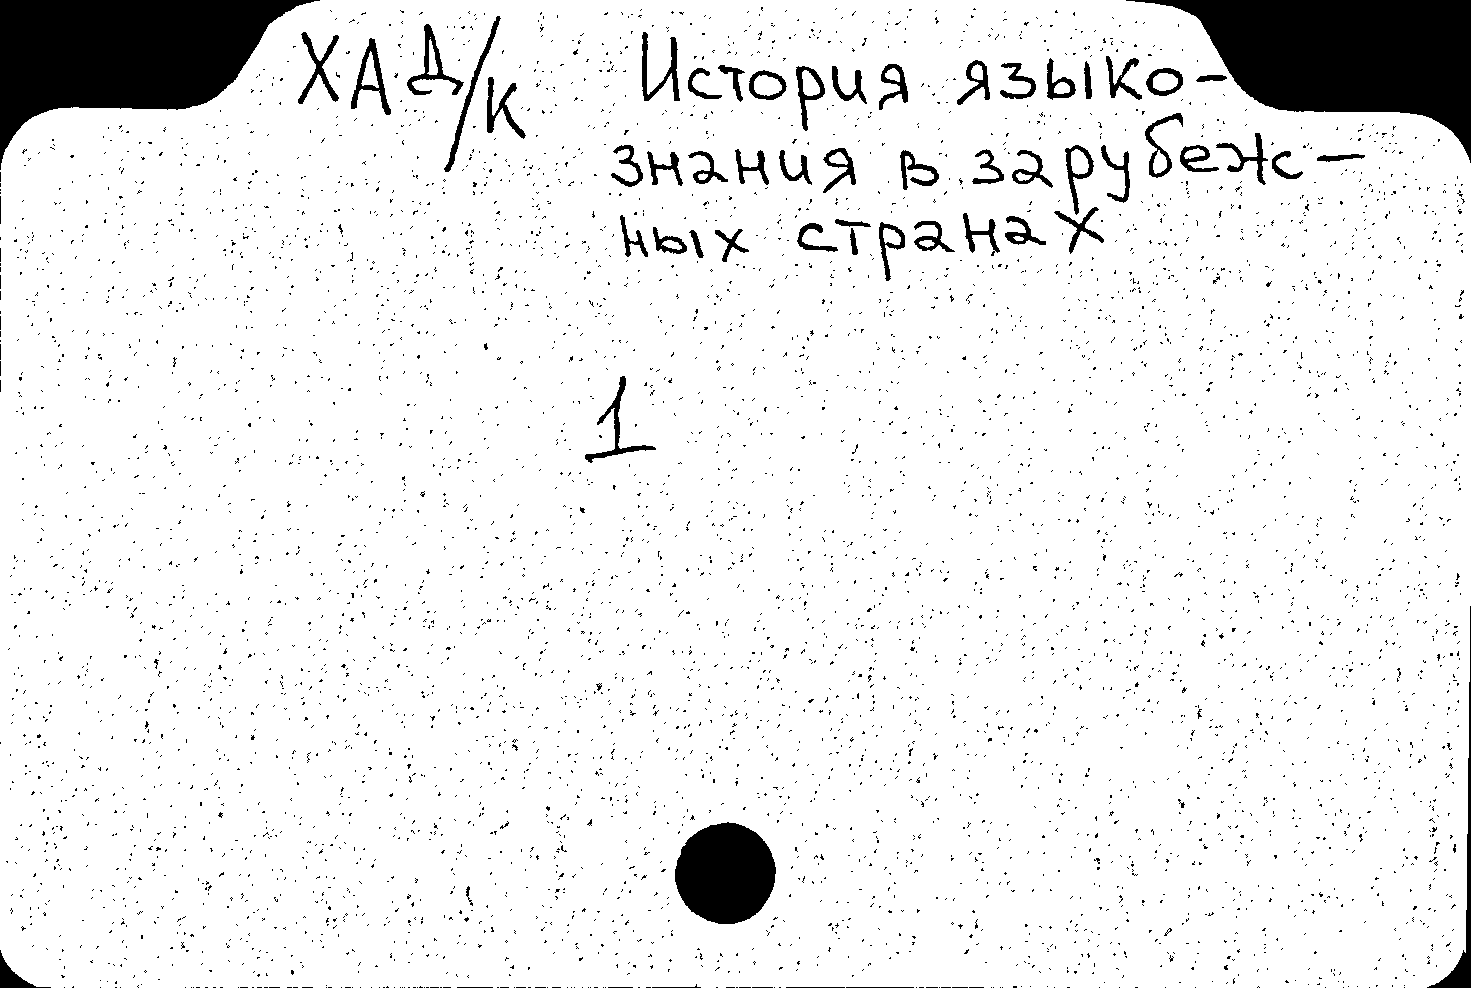 ХАД/К История языко-
знания в зарубеж-
ных странах
1